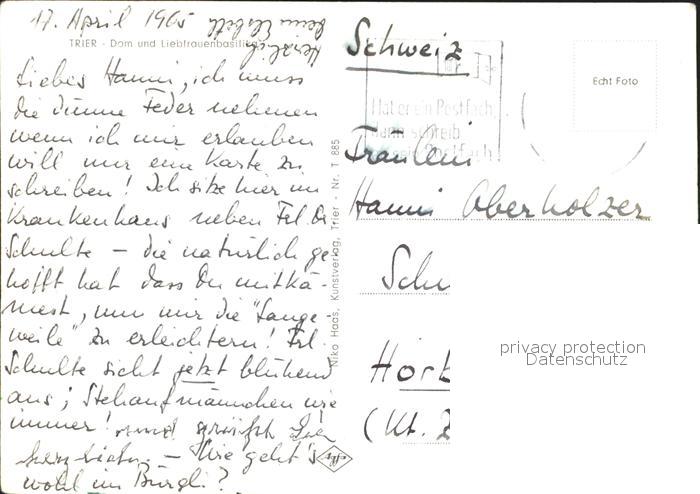 17. April 1965
TRIER - Dom und Liebfrauenbasilika
Liebes Hanni, ich muss
die dünne Feder nehmen
wenn ich mir erlauben
will nur eine Karte zu
schreiben! Ich sitze hier im
Krankenhaus neben Frl. Dr.
Schulte – die natürlich ge
hofft hat dass Du mitkä-
mest, um mir die "Lange-
weile" zu erleichtern! Frl.
Schulte sieht jetzt blühend
aus; Stehaufmännchen wie
immer! und grüsst Dich
herzlich. – Wie geht's
wohl im Bürgli?
Herzlich
Deine Elsbeth
Niko Haas, Kunstverlag, Trier - Nr. T 885
Schweiz
Hat er ein Postfach,
dann schreib
Postfach
Echt Foto
Fräulein
Hanni Oberholzer
Schu
Horb
(Kt. Z
privacy protection
Datenschutz